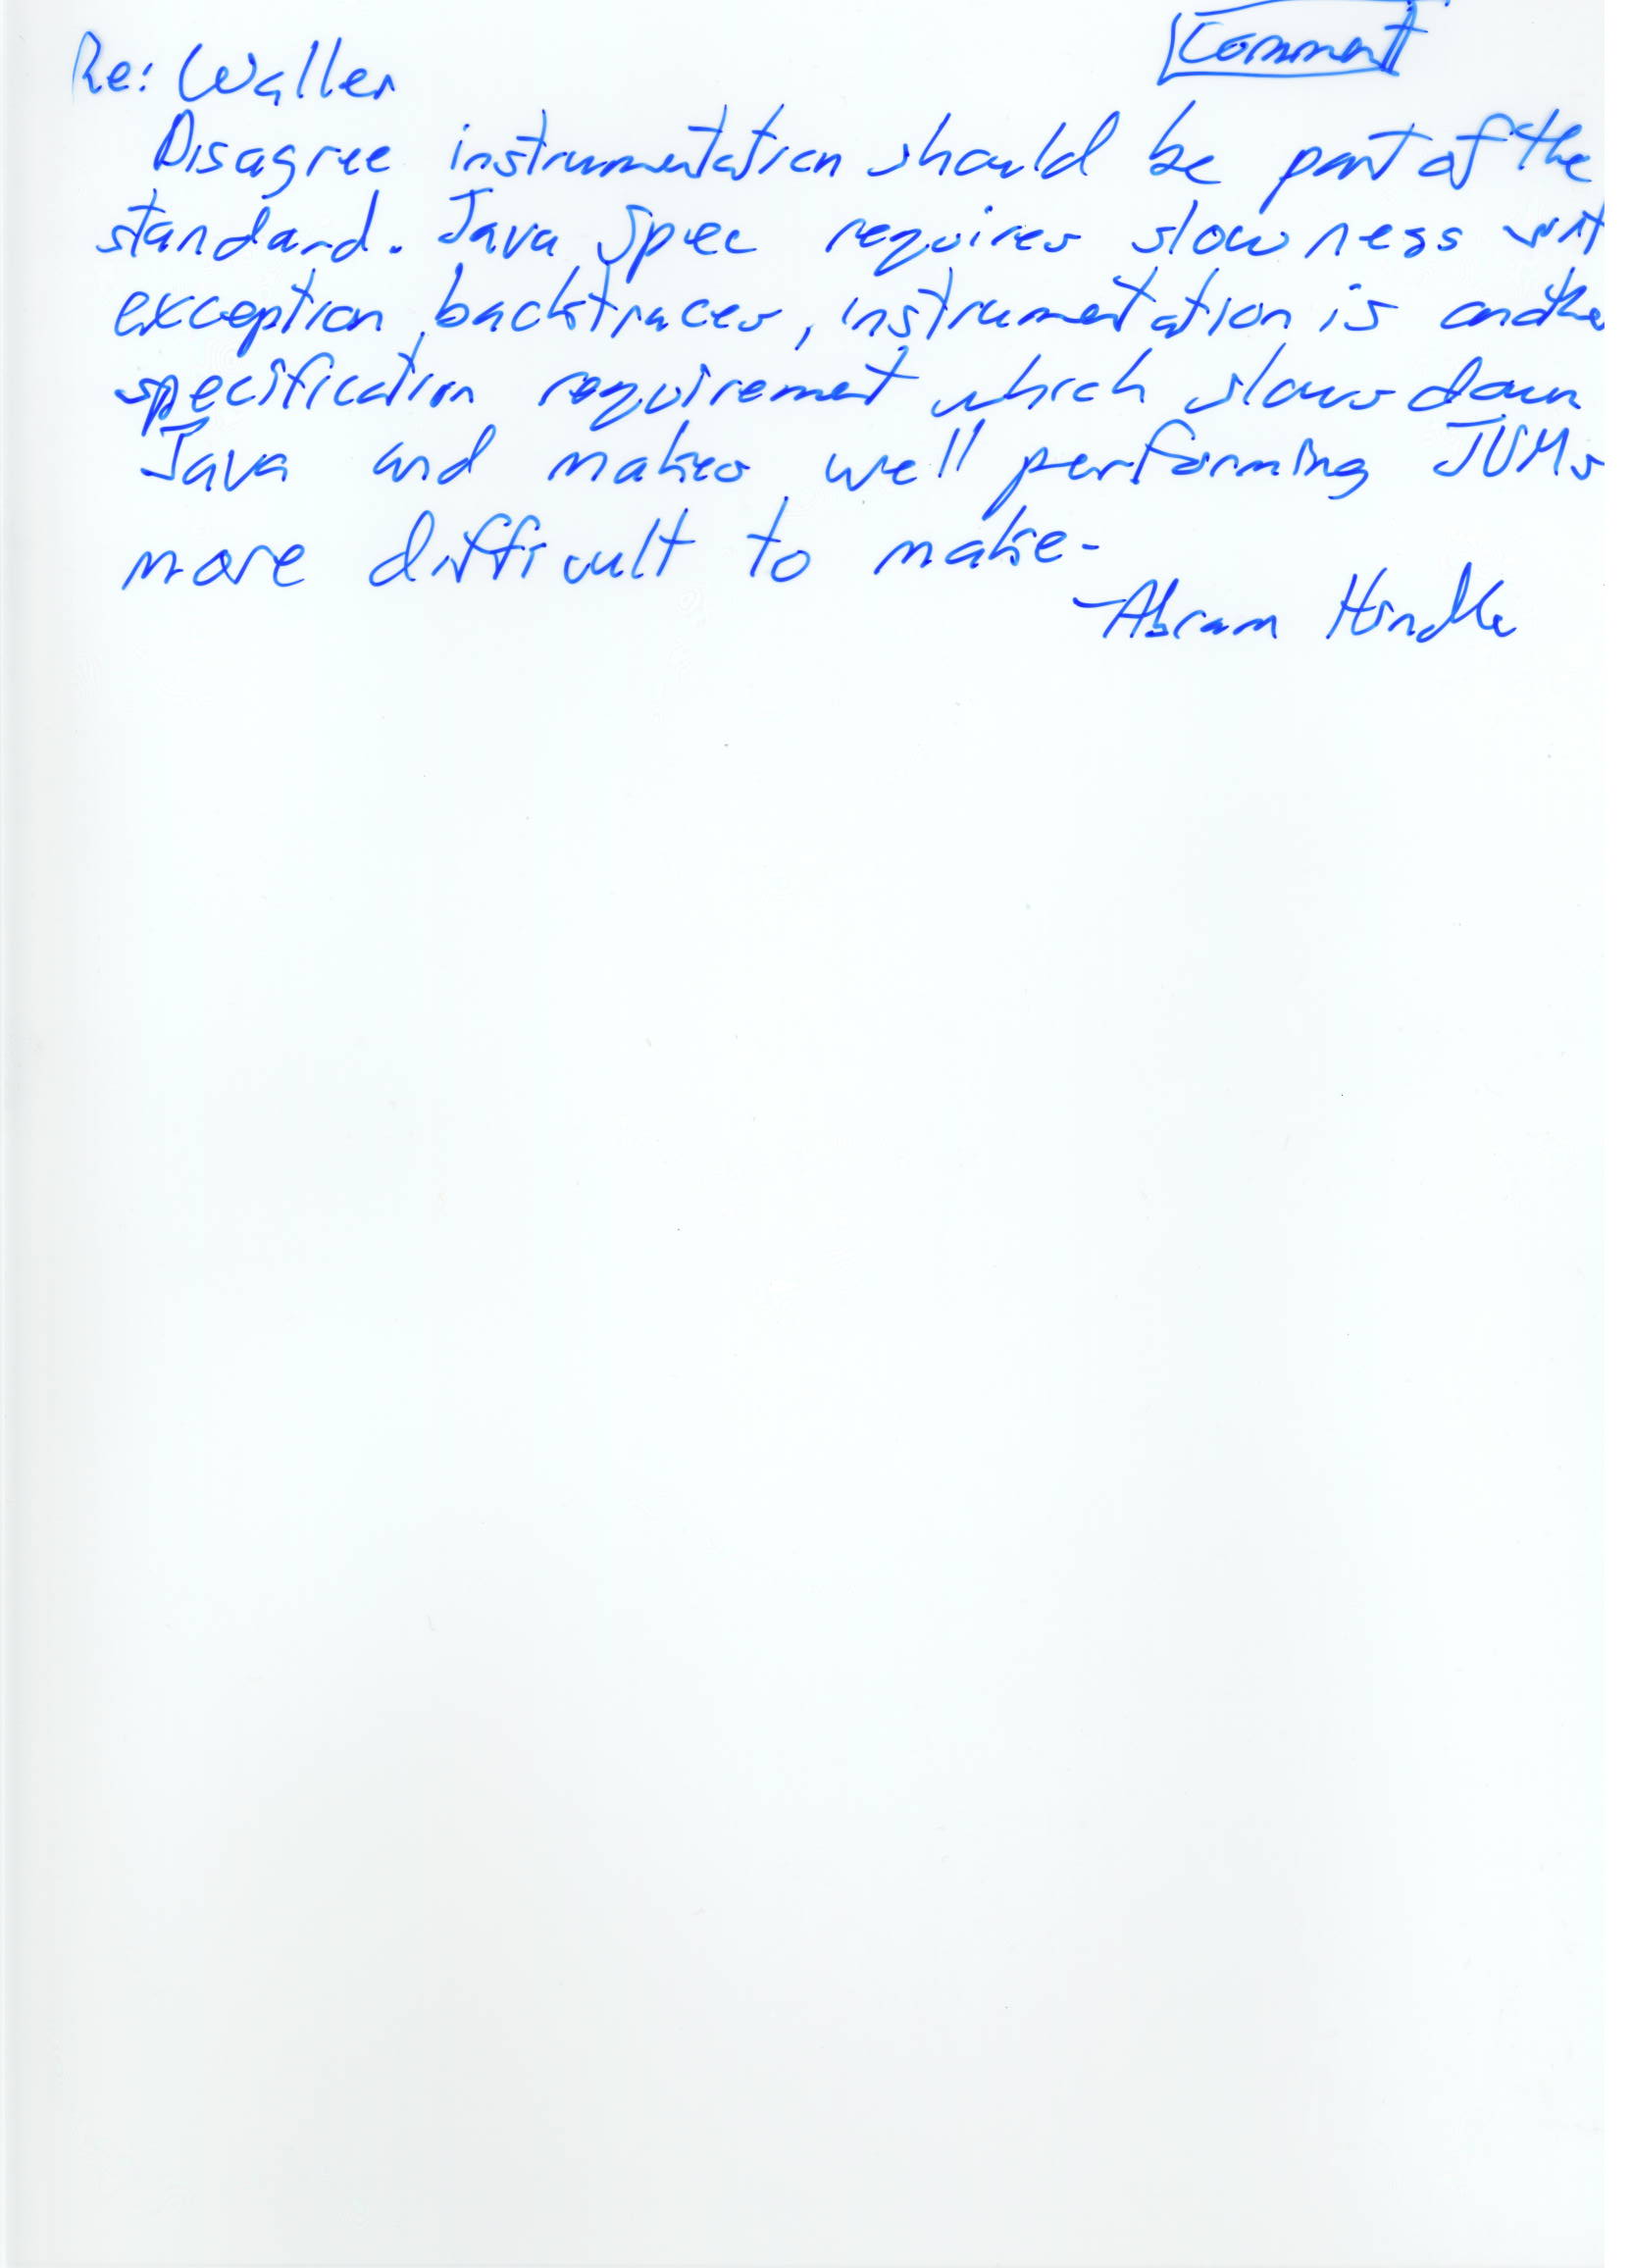 Comment
Re: Waller
Disagree instrumentation should be part of the
standard. Java Spec requires slowness wrt
exception backtraces, instrumentation is another
specification requirement which slows down
Java and makes well performing JVMs
more difficult to make-
-Abram Hindle